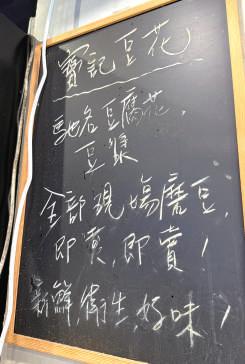 寶記豆花
馳名豆腐花,
豆漿
全部現場磨豆,
即責,即賣!
新鮮,衛生,好味!